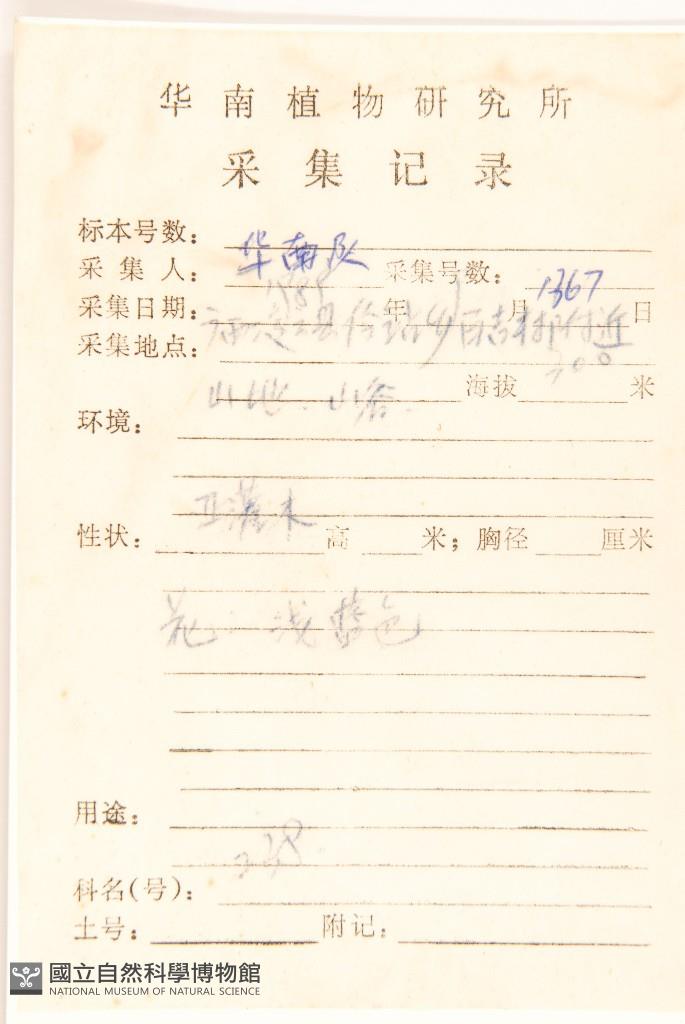 华南植物研究所
采集记录
标本号数：
采集人：华南队 采集号数：1367
采集日期：1989年 月 日
采集地点：百吉村附近
海拔 700 米
环境：山地、山谷.
性状：亚灌木 高 米；胸径 厘米
花：浅蓝色
用途：
科名(号)：238
土号： 附记：
國立自然科學博物館
NATIONAL MUSEUM OF NATURAL SCIENCE